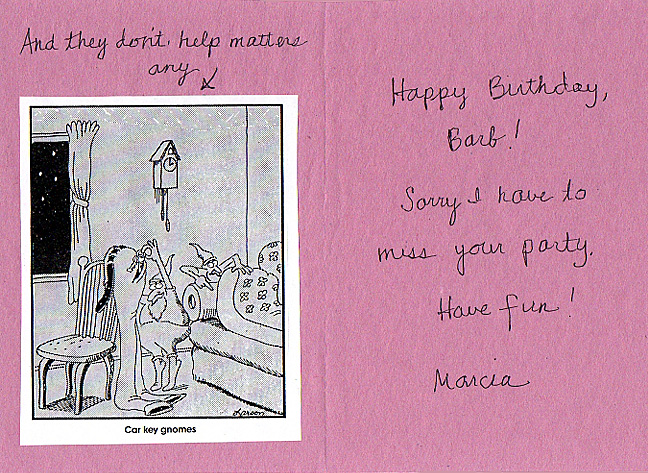 And they don't help matters
any
Larson
Car key gnomes
Happy Birthday,
Barb!
Sorry I have to
miss your party.
Have fun!
Marcia